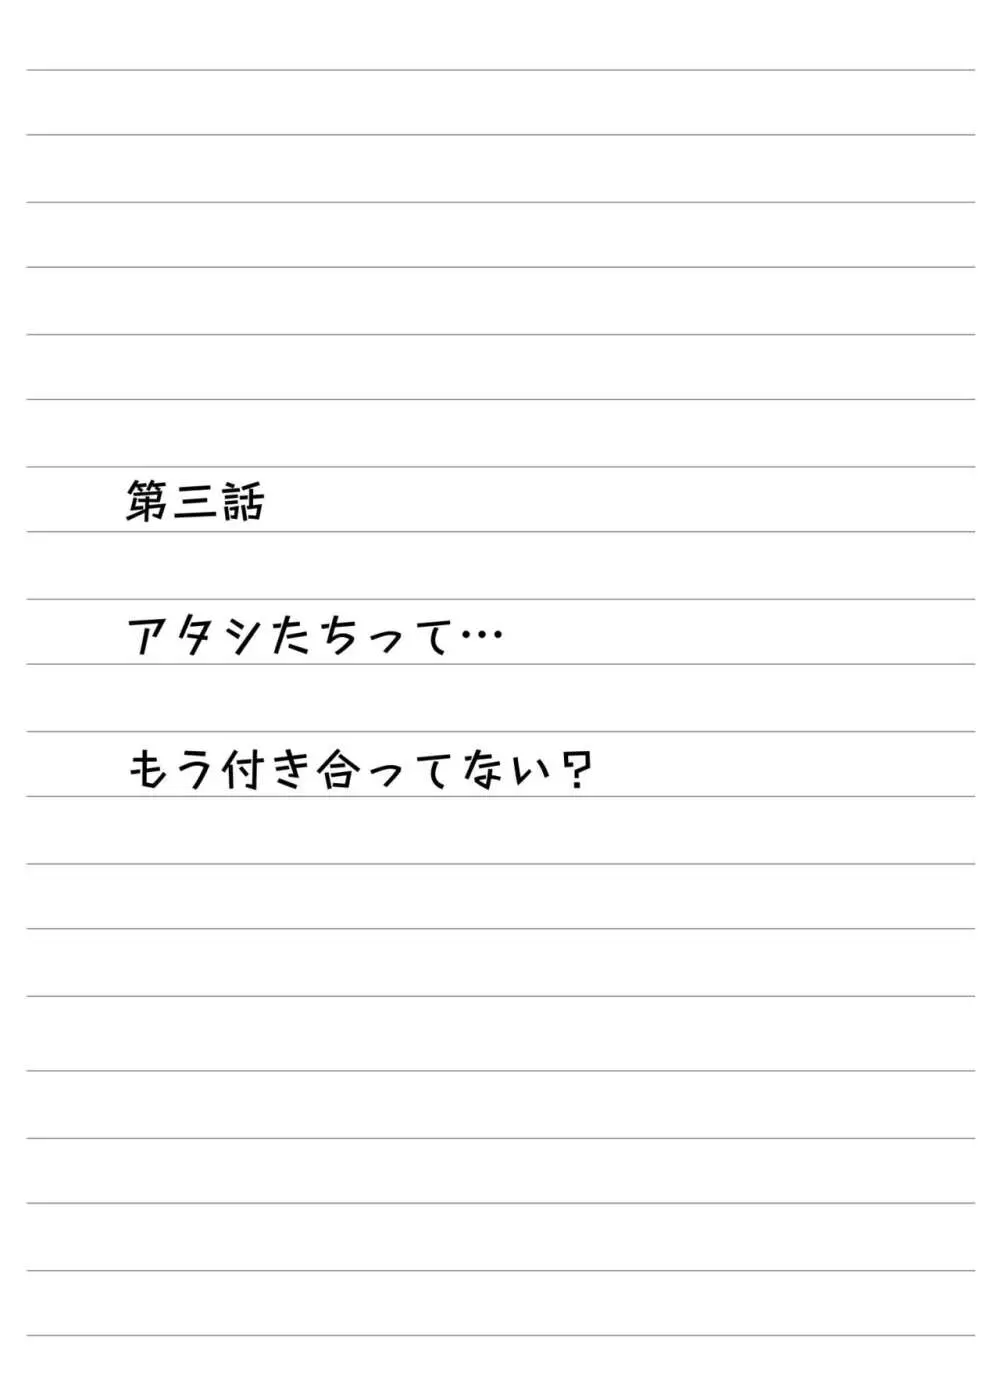 第三話
アタシたちって…
もう付き合ってない?